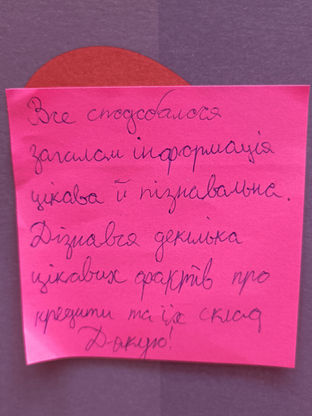 Все сподобалося
загалом інформація
цікава й пізнавальна.
Дізнався декілька
цікавих фактів про
кредити та їх склад
Дякую!